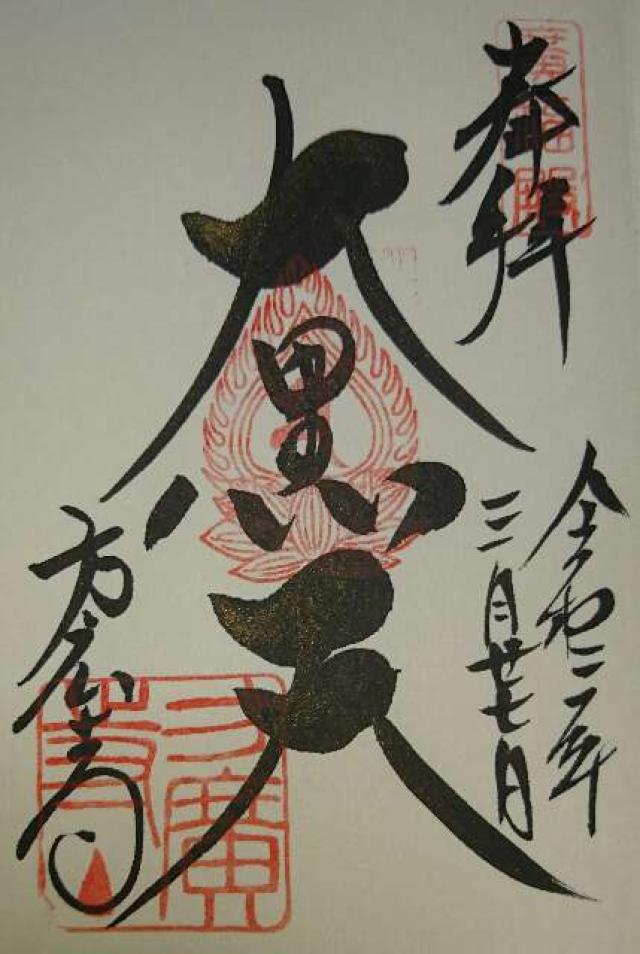 奉拝
令和二年
三月廿七日
大黒天
方広寺
方廣寺